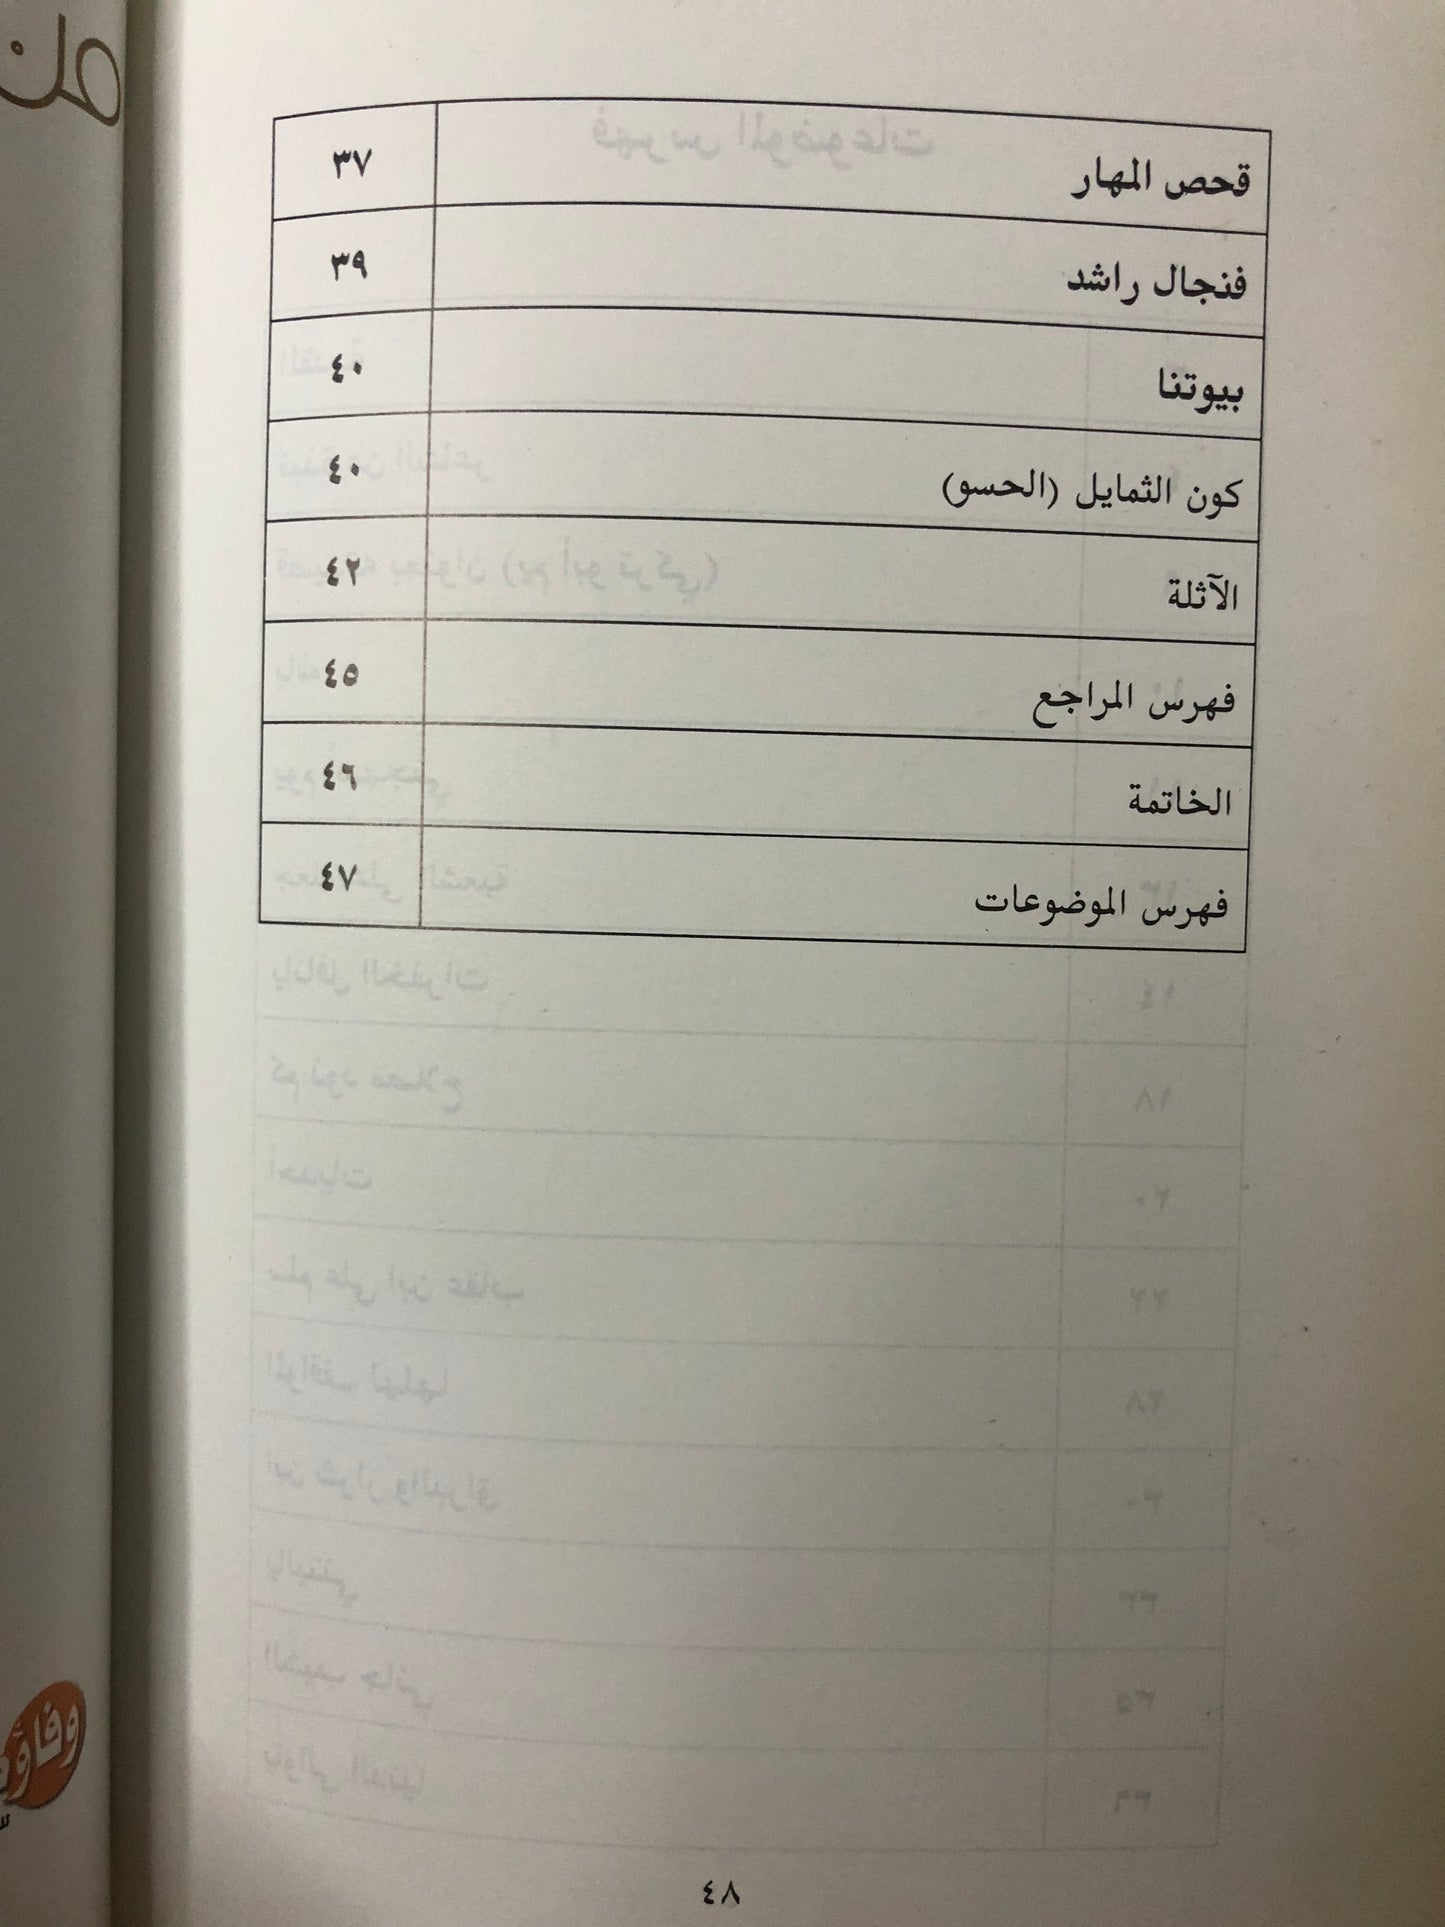 قحص المهار ٣٧
فنجال راشد ٣٩
بيوتنا ٤٠
كون الثمايل (الحسو) ٤٠
الآثلة ٤٢
فهرس المراجع ٤٥
الخاتمة ٤٦
فهرس الموضوعات ٤٧
٤٨